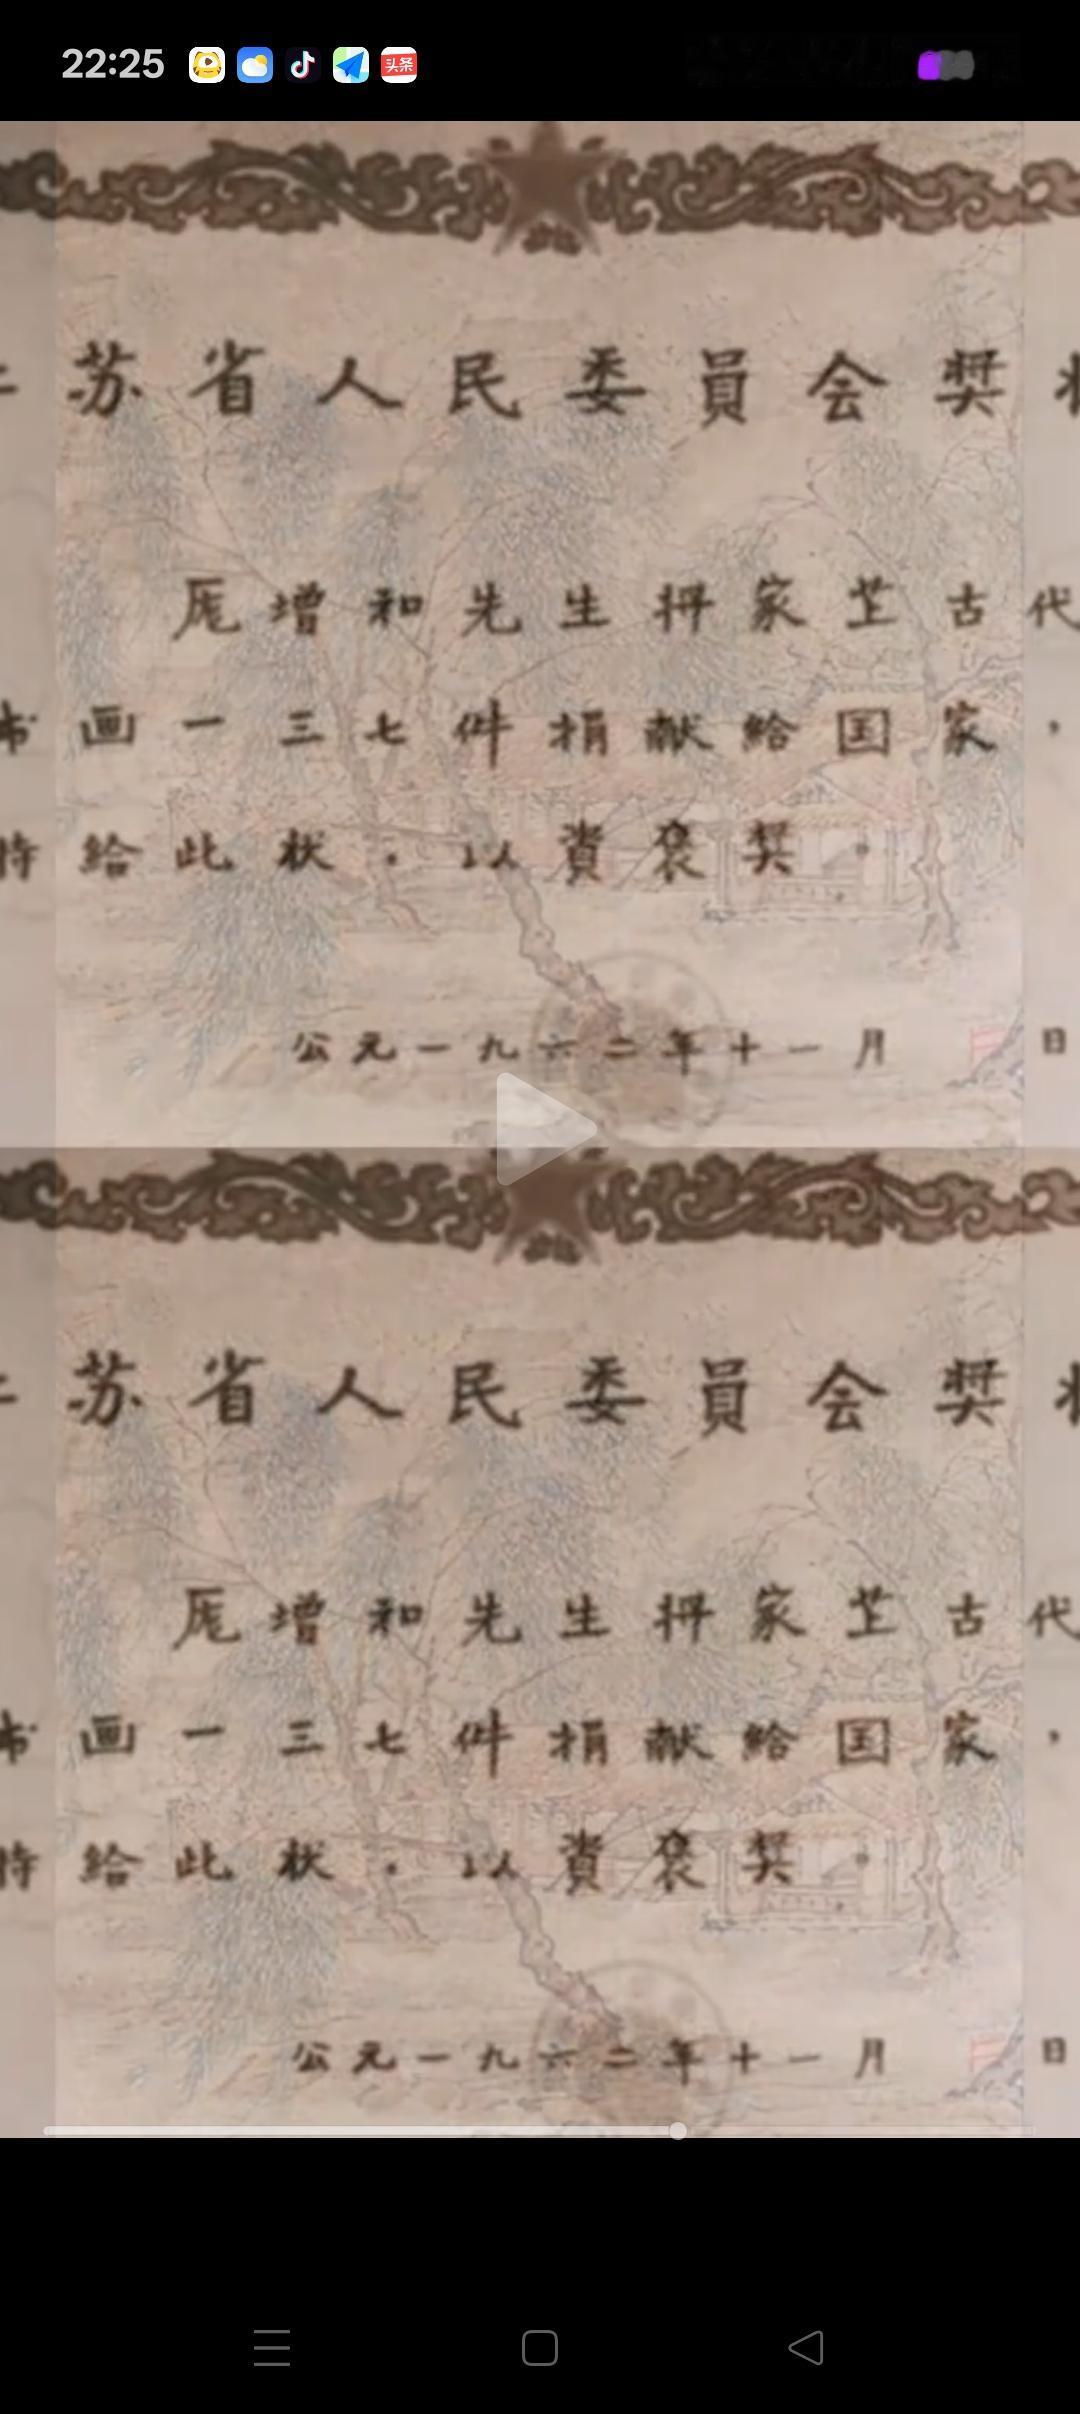 22:25
头条
苏省人民委員会奖
厐增和先生将家芷古代
画一三七件捐献給国家，
给此状．以資褒奖。
公元一九六二年十一月 日
苏省人民委員会奖
厐增和先生将家芷古代
画一三七件捐献給国家，
给此状．以資褒奖。
公元一九六二年十一月 日